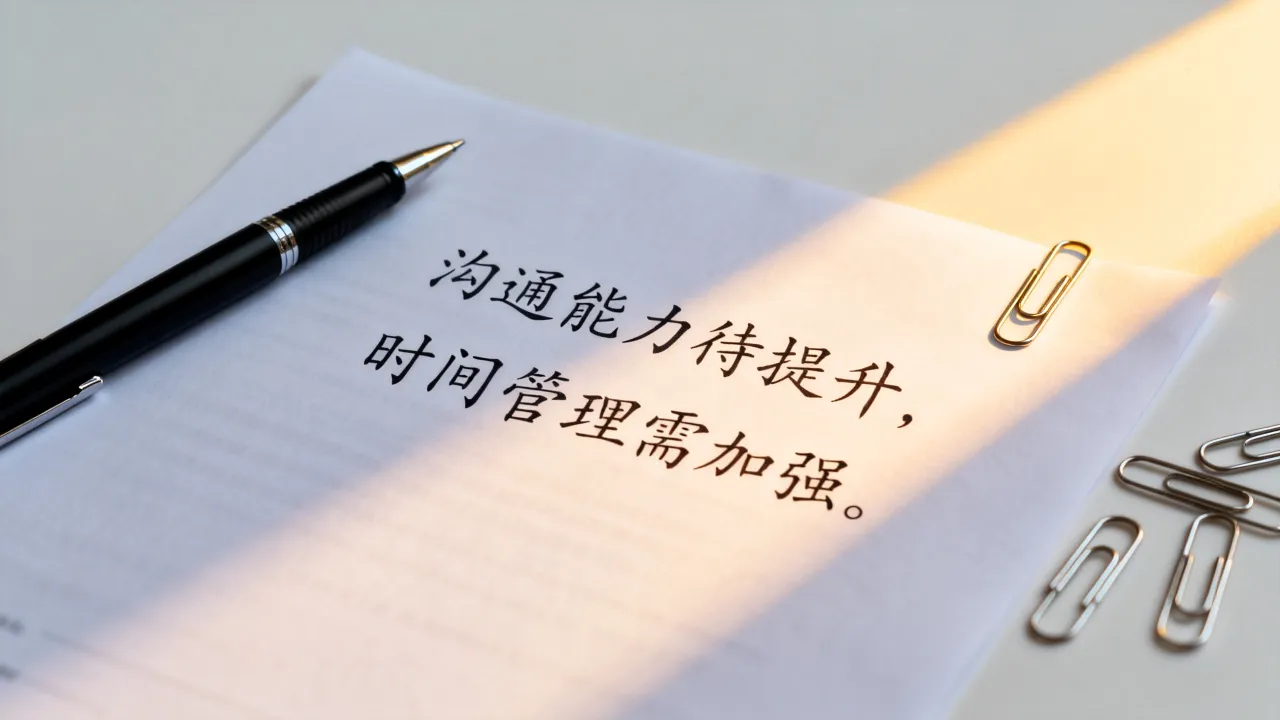 沟通能力待提升，
时间管理需加强。